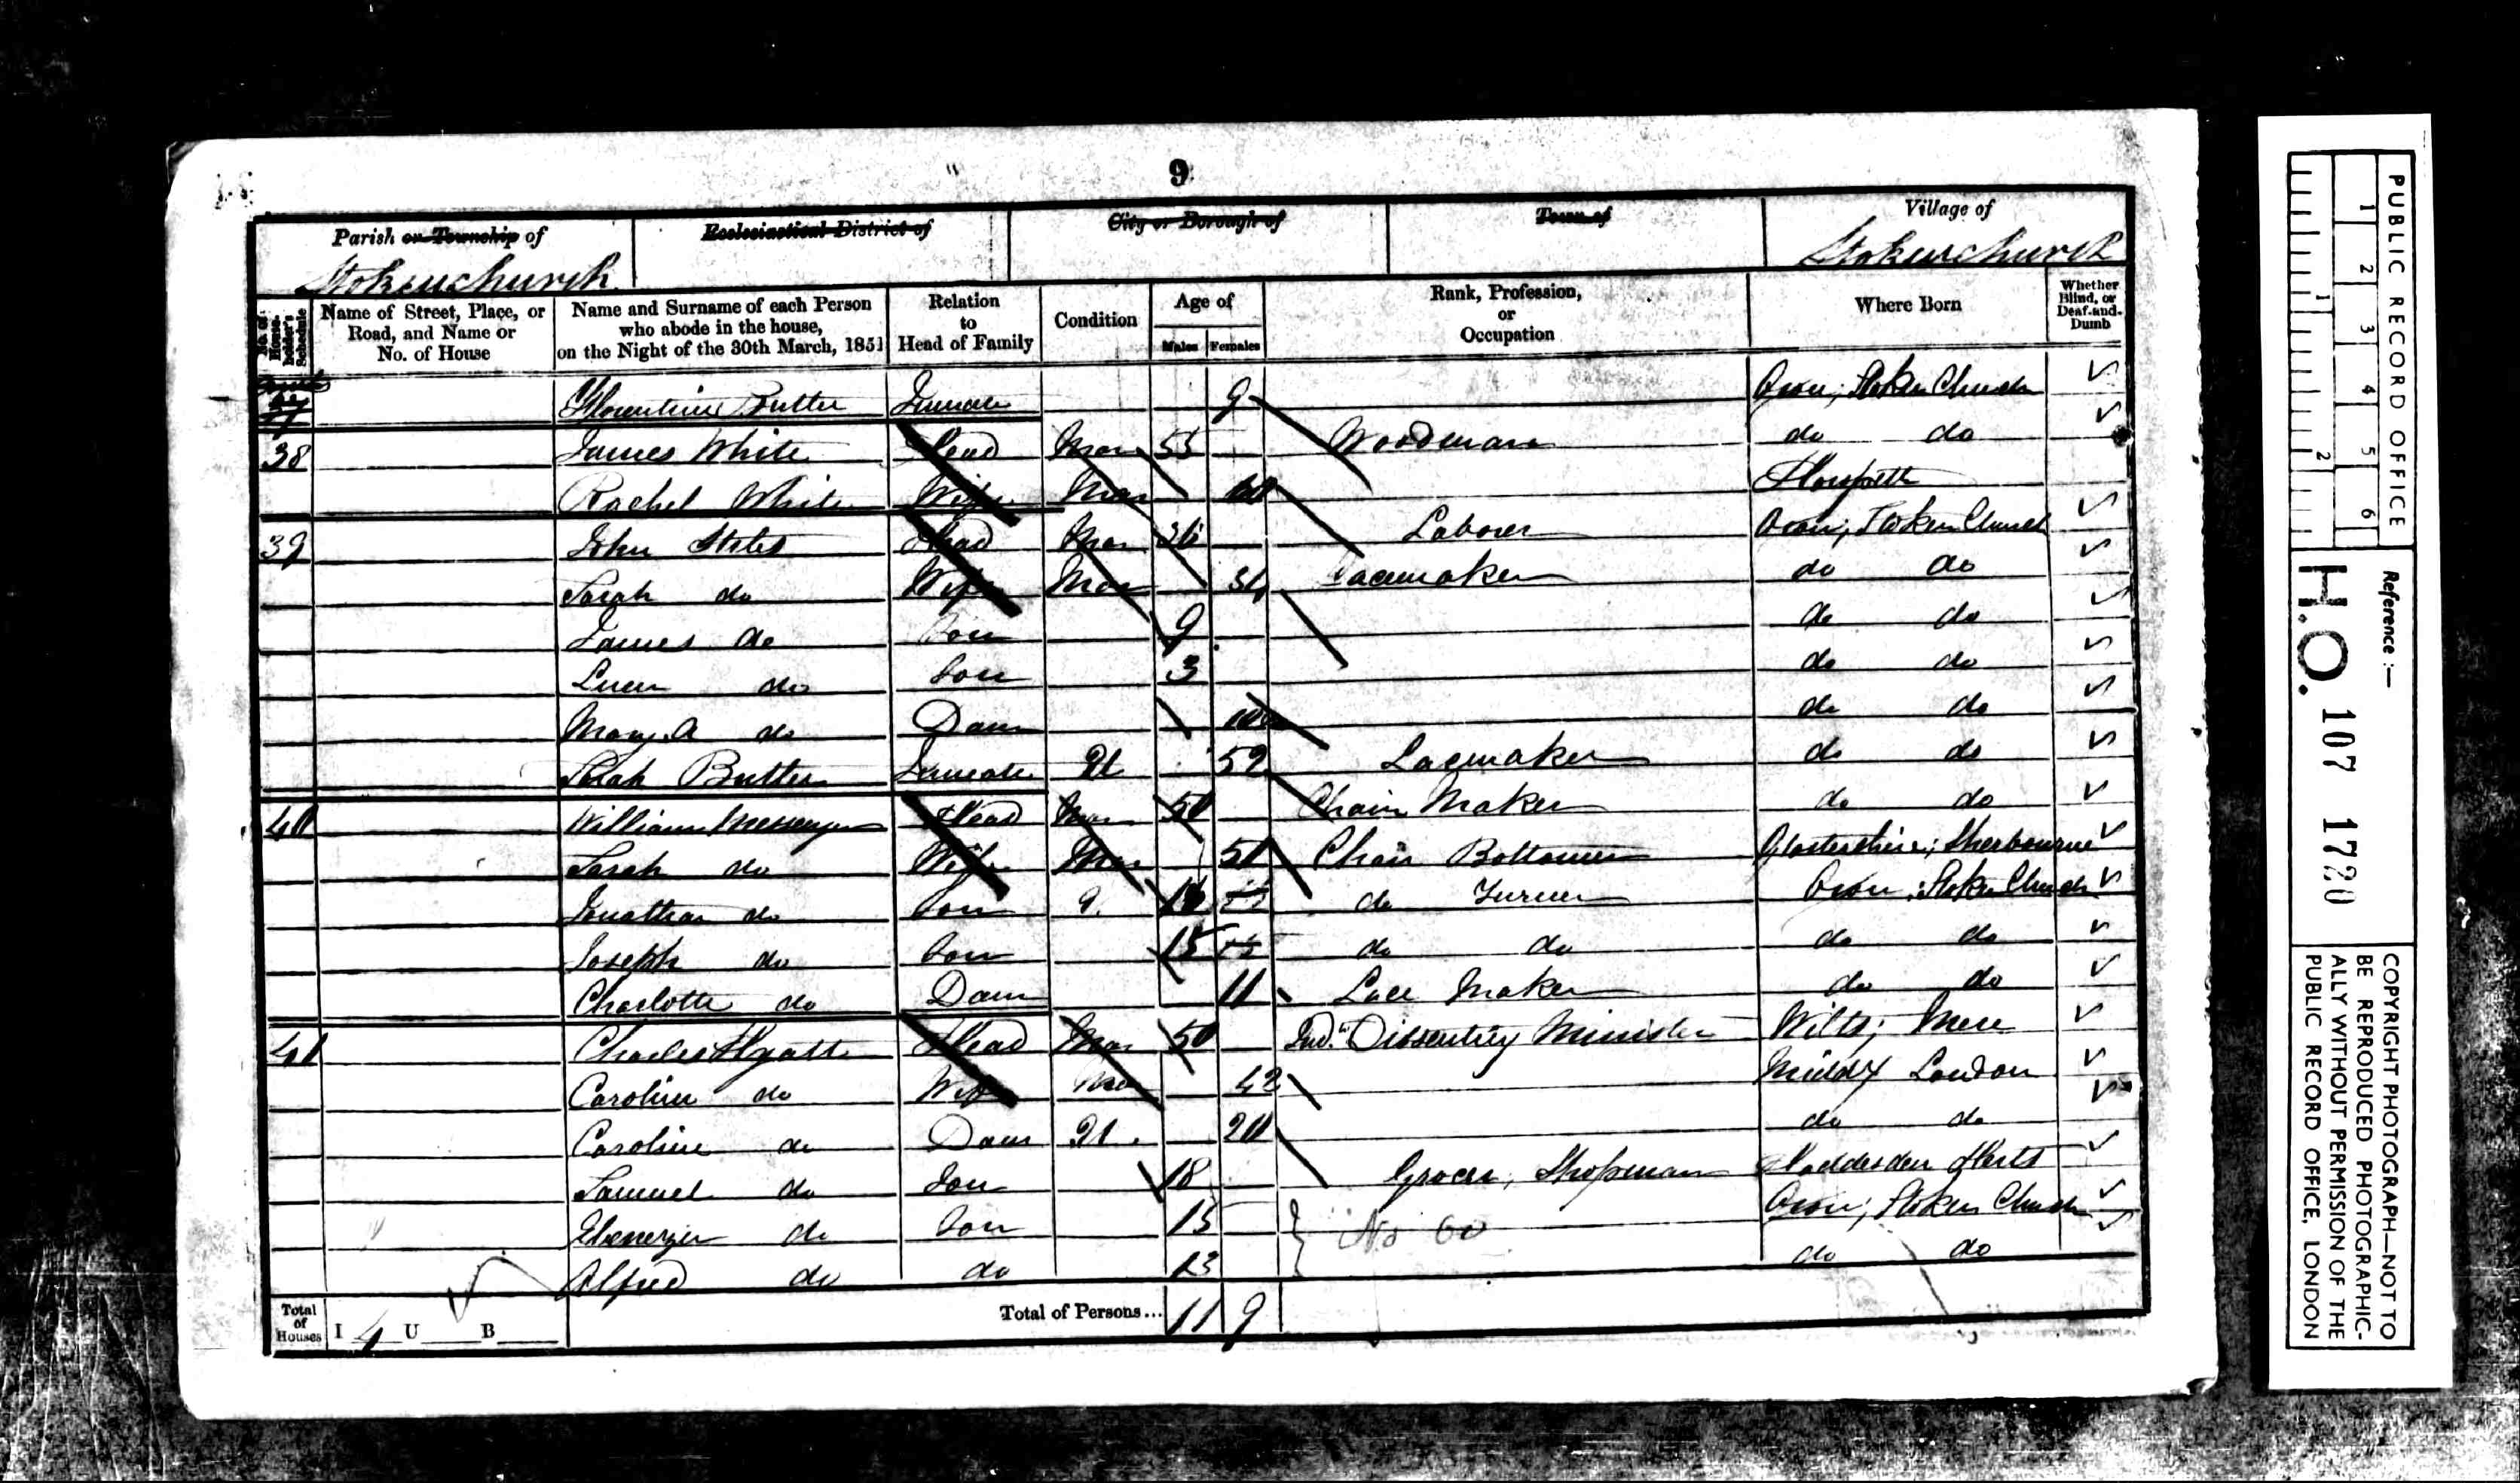 9
Parish or Township of
Stokenchurch
Ecclesiastical District of
City or Borough of
Town of
Village of
Stokenchurch
No. of House-holder's Schedule
Name of Street, Place, or Road, and Name or No. of House
Name and Surname of each Person who abode in the house, on the Night of the 30th March, 1851
Relation to Head of Family
Condition
Age of
Males Females
Rank, Profession, or Occupation
Where Born
Whether Blind, or Deaf-and-Dumb
Butler Inmate 9 Oxon; Stoken Church
38 James White Head Mar 55 Woodman do do
Rachel White Wife Mar
39 John Head Mar 36 Laborer Oxon; Stoken Church
Sarah do Wife Mar 34 Lacemaker do do
James do Son 9 do do
do Son 3 do do
Mary A do Daur do do
Sarah Butler Inmate U 52 Lacemaker do do
40 William Messenger Head Mar 50 Chair Maker do do
Sarah do Wife Mar 50 Chair Bottomer Glostershire; Sherbourne
Jonathan do Son do Turner Oxon; Stoken Church
Joseph do Son 15 15 do do do do
Charlotte do Daur 11 Lace Maker do do
41 Charles Hyatt Head Mar 50 Ind. Dissenting Minister Wilts; Mere
Caroline do Wife Mar 42 Middx London
Caroline do Daur U 20 do do
Samuel do Son 18 Grocer, Shopman Hoddesden Herts
Ebenezer do Son 15 Oxon; Stoken Church
Alfred do do 13 do do
Total of Houses I 4 U B
Total of Persons... 11 9
PUBLIC RECORD OFFICE
1 2 3 4 5 6
1 2
Reference :-
H.O. 107 1720
COPYRIGHT PHOTOGRAPH—NOT TO
BE REPRODUCED PHOTOGRAPHIC-
ALLY WITHOUT PERMISSION OF THE
PUBLIC RECORD OFFICE, LONDON